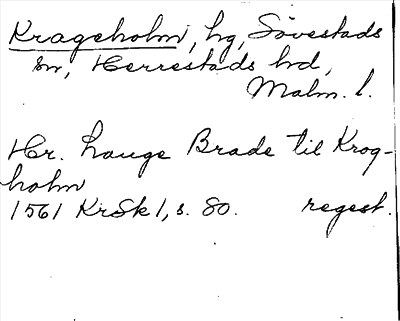 Krageholm, hg, Sövestads
sn, Herrestads hd,
Malm. l.
Hr. Lauge Brade til Krog-
holm
1561 KrSk 1, s. 80. regest.